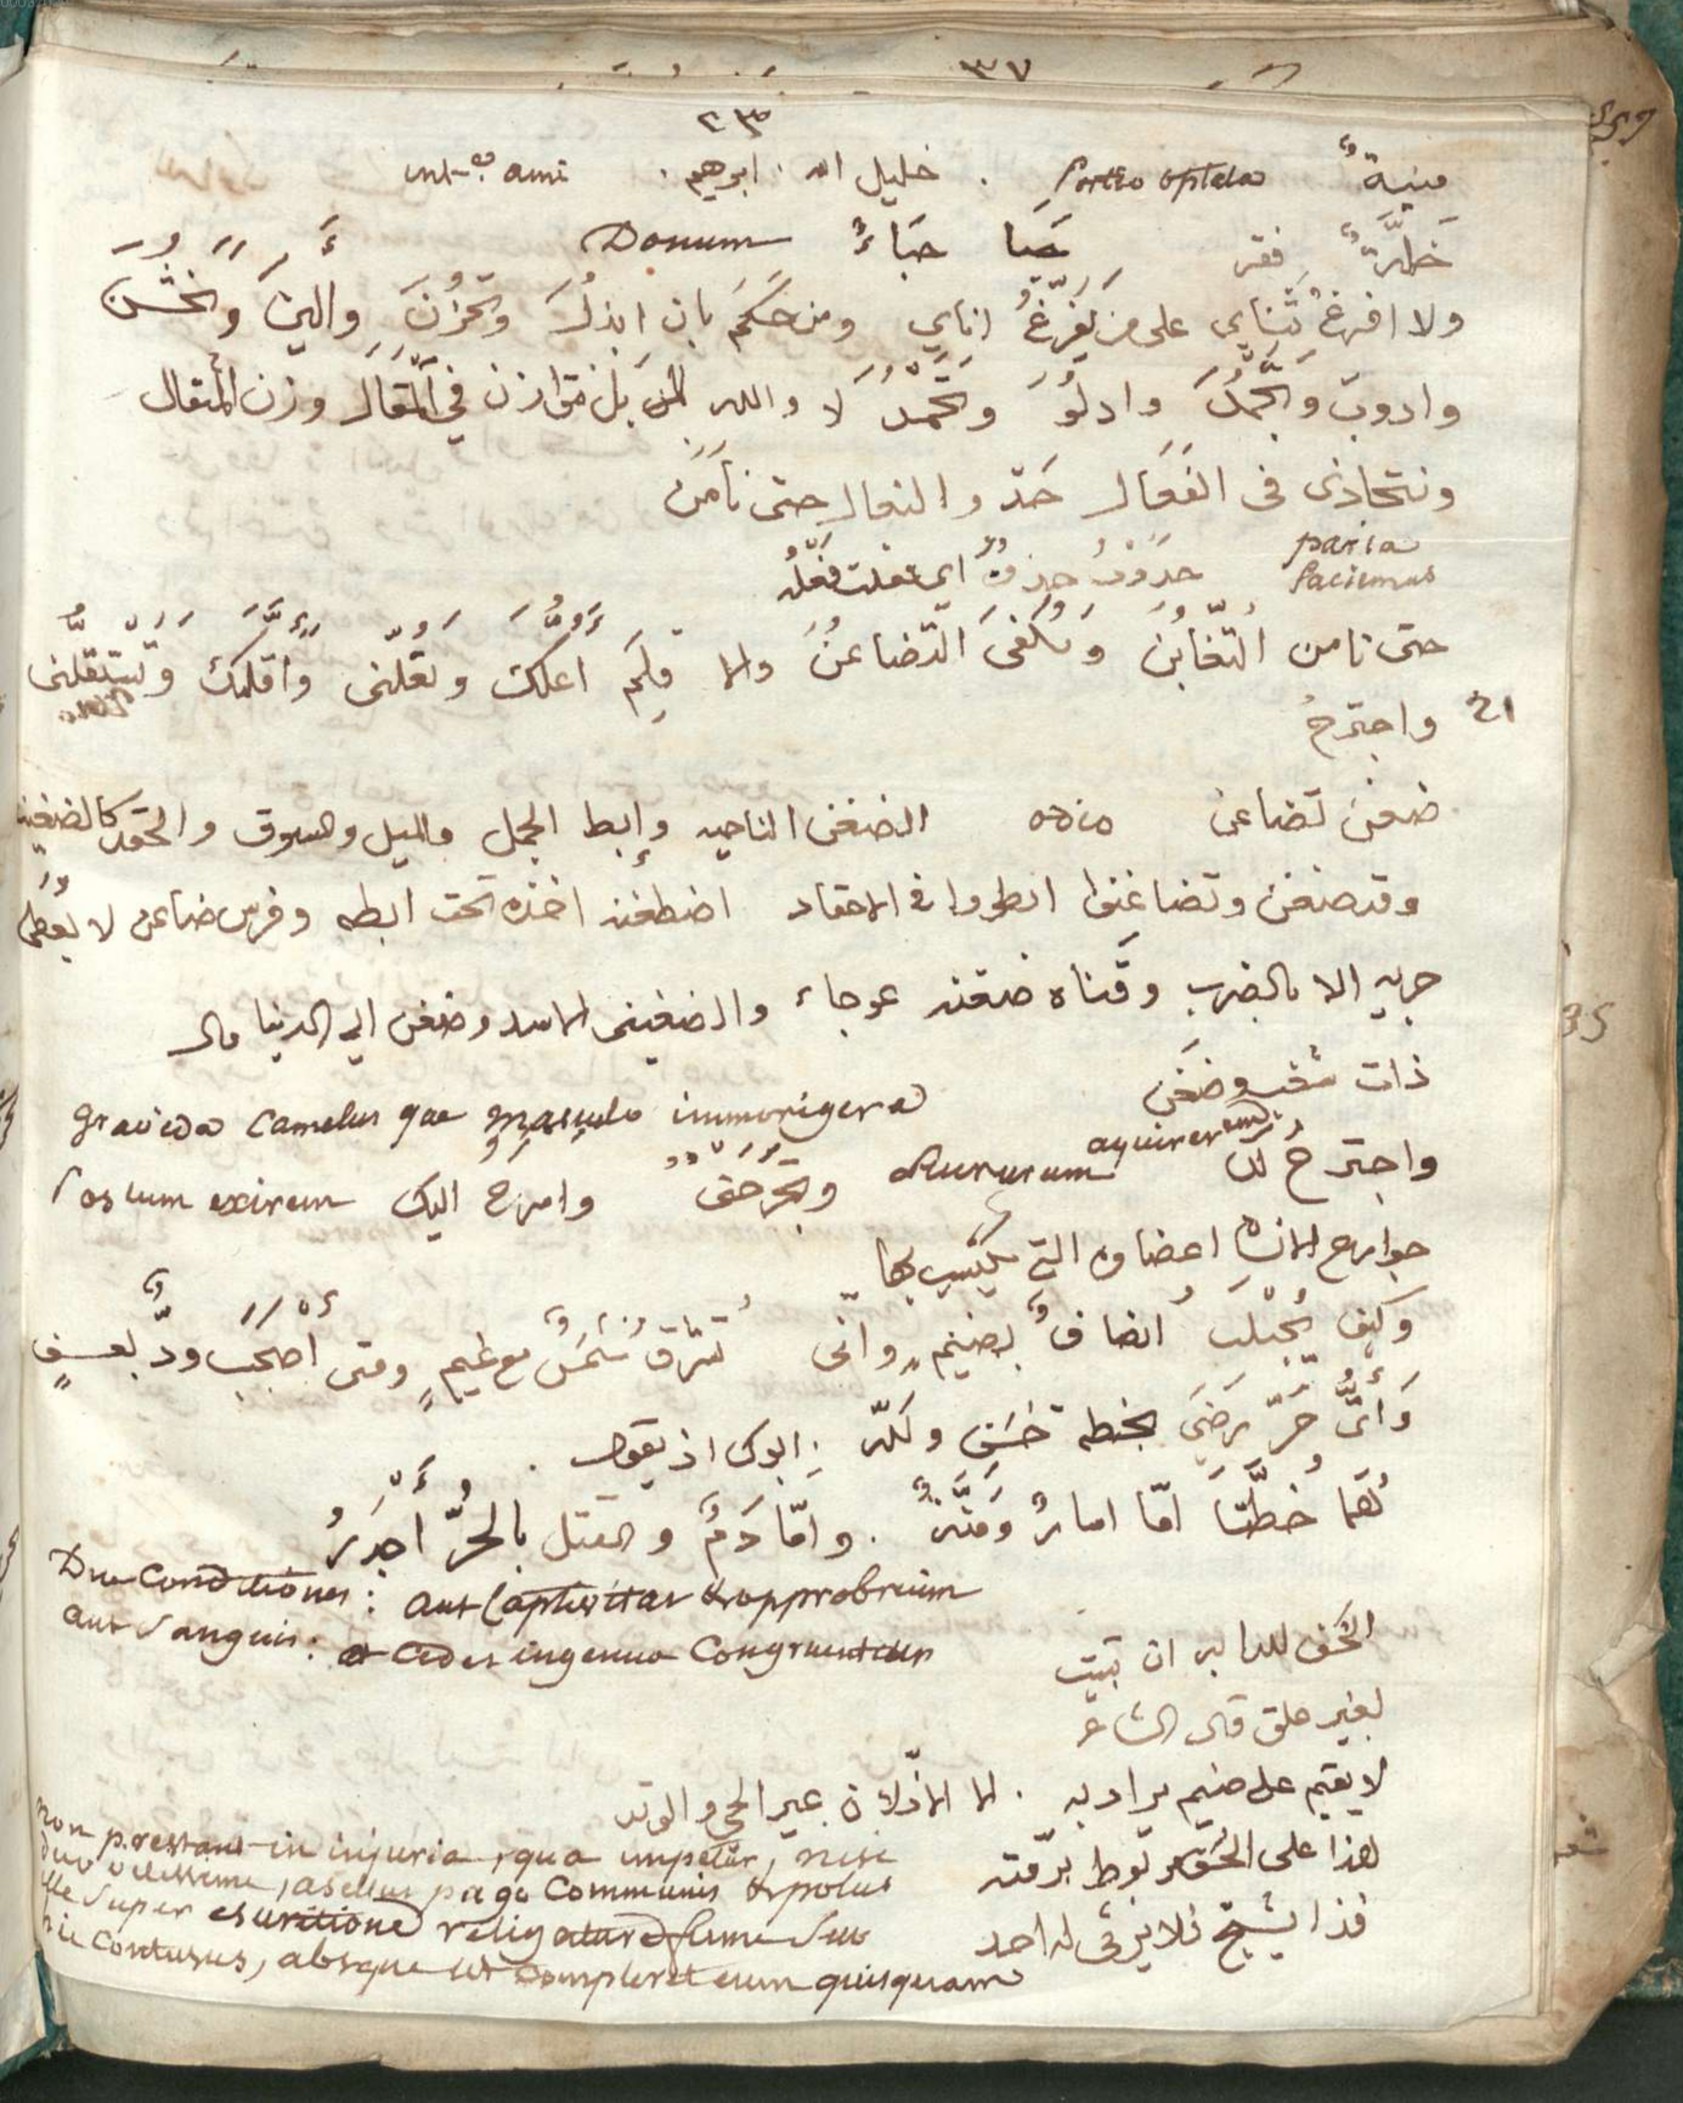 ٣٧
٢٣
منيةٌ sortio optata . خليل الله . ابرهيم . ami
خَلَّةٌ فقر حَبا حِبَاءٌ Donum
ولا افرغُ ثَنَاي على من يُفَرِّغُ اناي ومن حَكَمَ بان ابذلَ وتَخْزُنَ والينَ وتَخْشُنَ
واذوبَ وتَجْمُدَ واذكُوَ وتَخْمُدَ لا والله بَل نتوازن في المَقَال وزن المثقال
ونتحاذى فى الفَعَال حَذْوَ النعال حتى نامَنَ
paria
faciemus حَذْوَ اى فعلت فعله
حتى نامن التّغابُنَ ونُكفىَ التّضاغنُ والا فلِمَ اُعلّكَ وتُعِلّنى واُقلّكَ وتَستقلّنى
21 واجترحُ
ضغن تضاغن odio الضغن الناحيه وإبط الجمل والميل والشوق والحقد كالضغينه
وقد ضغن وتضاغنوا انطووا في الاحقاد اضطغنه اخذه تحت ابطه وفرس ضاغن لا يُعطى
جريه الا بالضرب وقناه ضغنه عوجاء والضغينى الاسد وضغن الى الدنيا مال
ذات شغب وضغن
gravida Camelus quae masculo immorigera
واجترحُ لك aquirerem وتَجْرَحُنى واسرحُ اليك
جوارح الانسان اعضاوه التي يكتسب بها
وكيف يُجْتَلَبُ انصافٌ بضَيْمٍ وانى تُشرق شَمسٌ مع غيمٍ ومتى اُصحِبَ ودٌّ بعسفٍ
وَاَىُّ حُرٍّ رَضىَ بخطه خَسْفٍ ولله ابوك اذ يقول .
هُما خُطَّتَا امّا اسارٌ ومِنَّةٌ . وامّا دَمٌ والقتل بالحُرّ اَجْدَرُ
Due Conditiones: aut Captivitas & opprobrium
aut Sanguis: et Cedes ingenuo Congruentior
الخسف للدابه ان تبيت
بغير علق قال الشاعر
لا يقيم على ضيم يراد به . الا الاذلّان عير الحي والوتد
هذا على الخسف مربوط برمّته
وذا يشج فلا يرثى له احد
non prestant in injuria, qua impetitur, nisi
duo vilissimi, asellus pago Communis & polus
ille super esuritione religatur fune suo
hic contusus, absque ut compleret eum quisquam